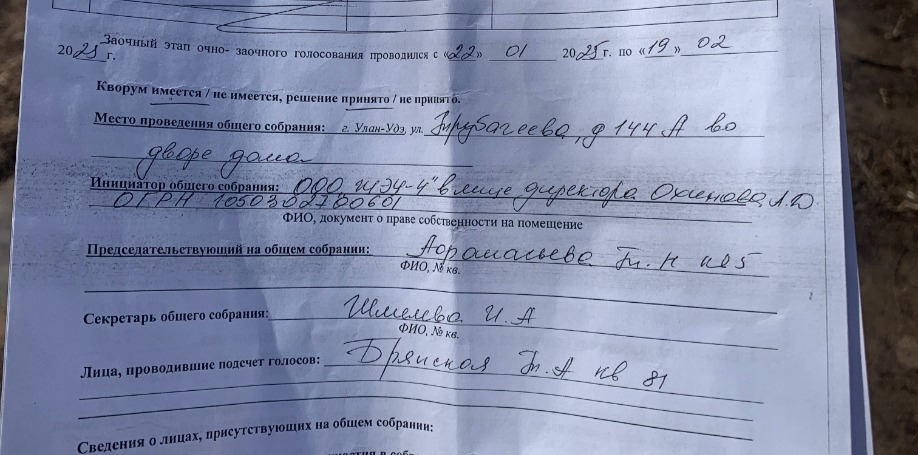 Заочный этап очно- заочного голосования проводился с «22» 01 2025 г. по «19» 02
2025 г.
Кворум имеется / не имеется, решение принято / не принято.
Место проведения общего собрания: г. Улан-Удэ, ул. Трубачеева, д 144 А во
дворе дома
Инициатор общего собрания: ООО "ЖЭУ-4" в лице директора А.Ю
ОГРН
ФИО, документ о праве собственности на помещение
Председательствующий на общем собрании: Т. Н кв 5
ФИО, № кв.
Секретарь общего собрания: Шмелева И. А
ФИО, № кв.
Лица, проводившие подсчет голосов: Брянская Т. А кв 81
Сведения о лицах, присутствующих на общем собрании: